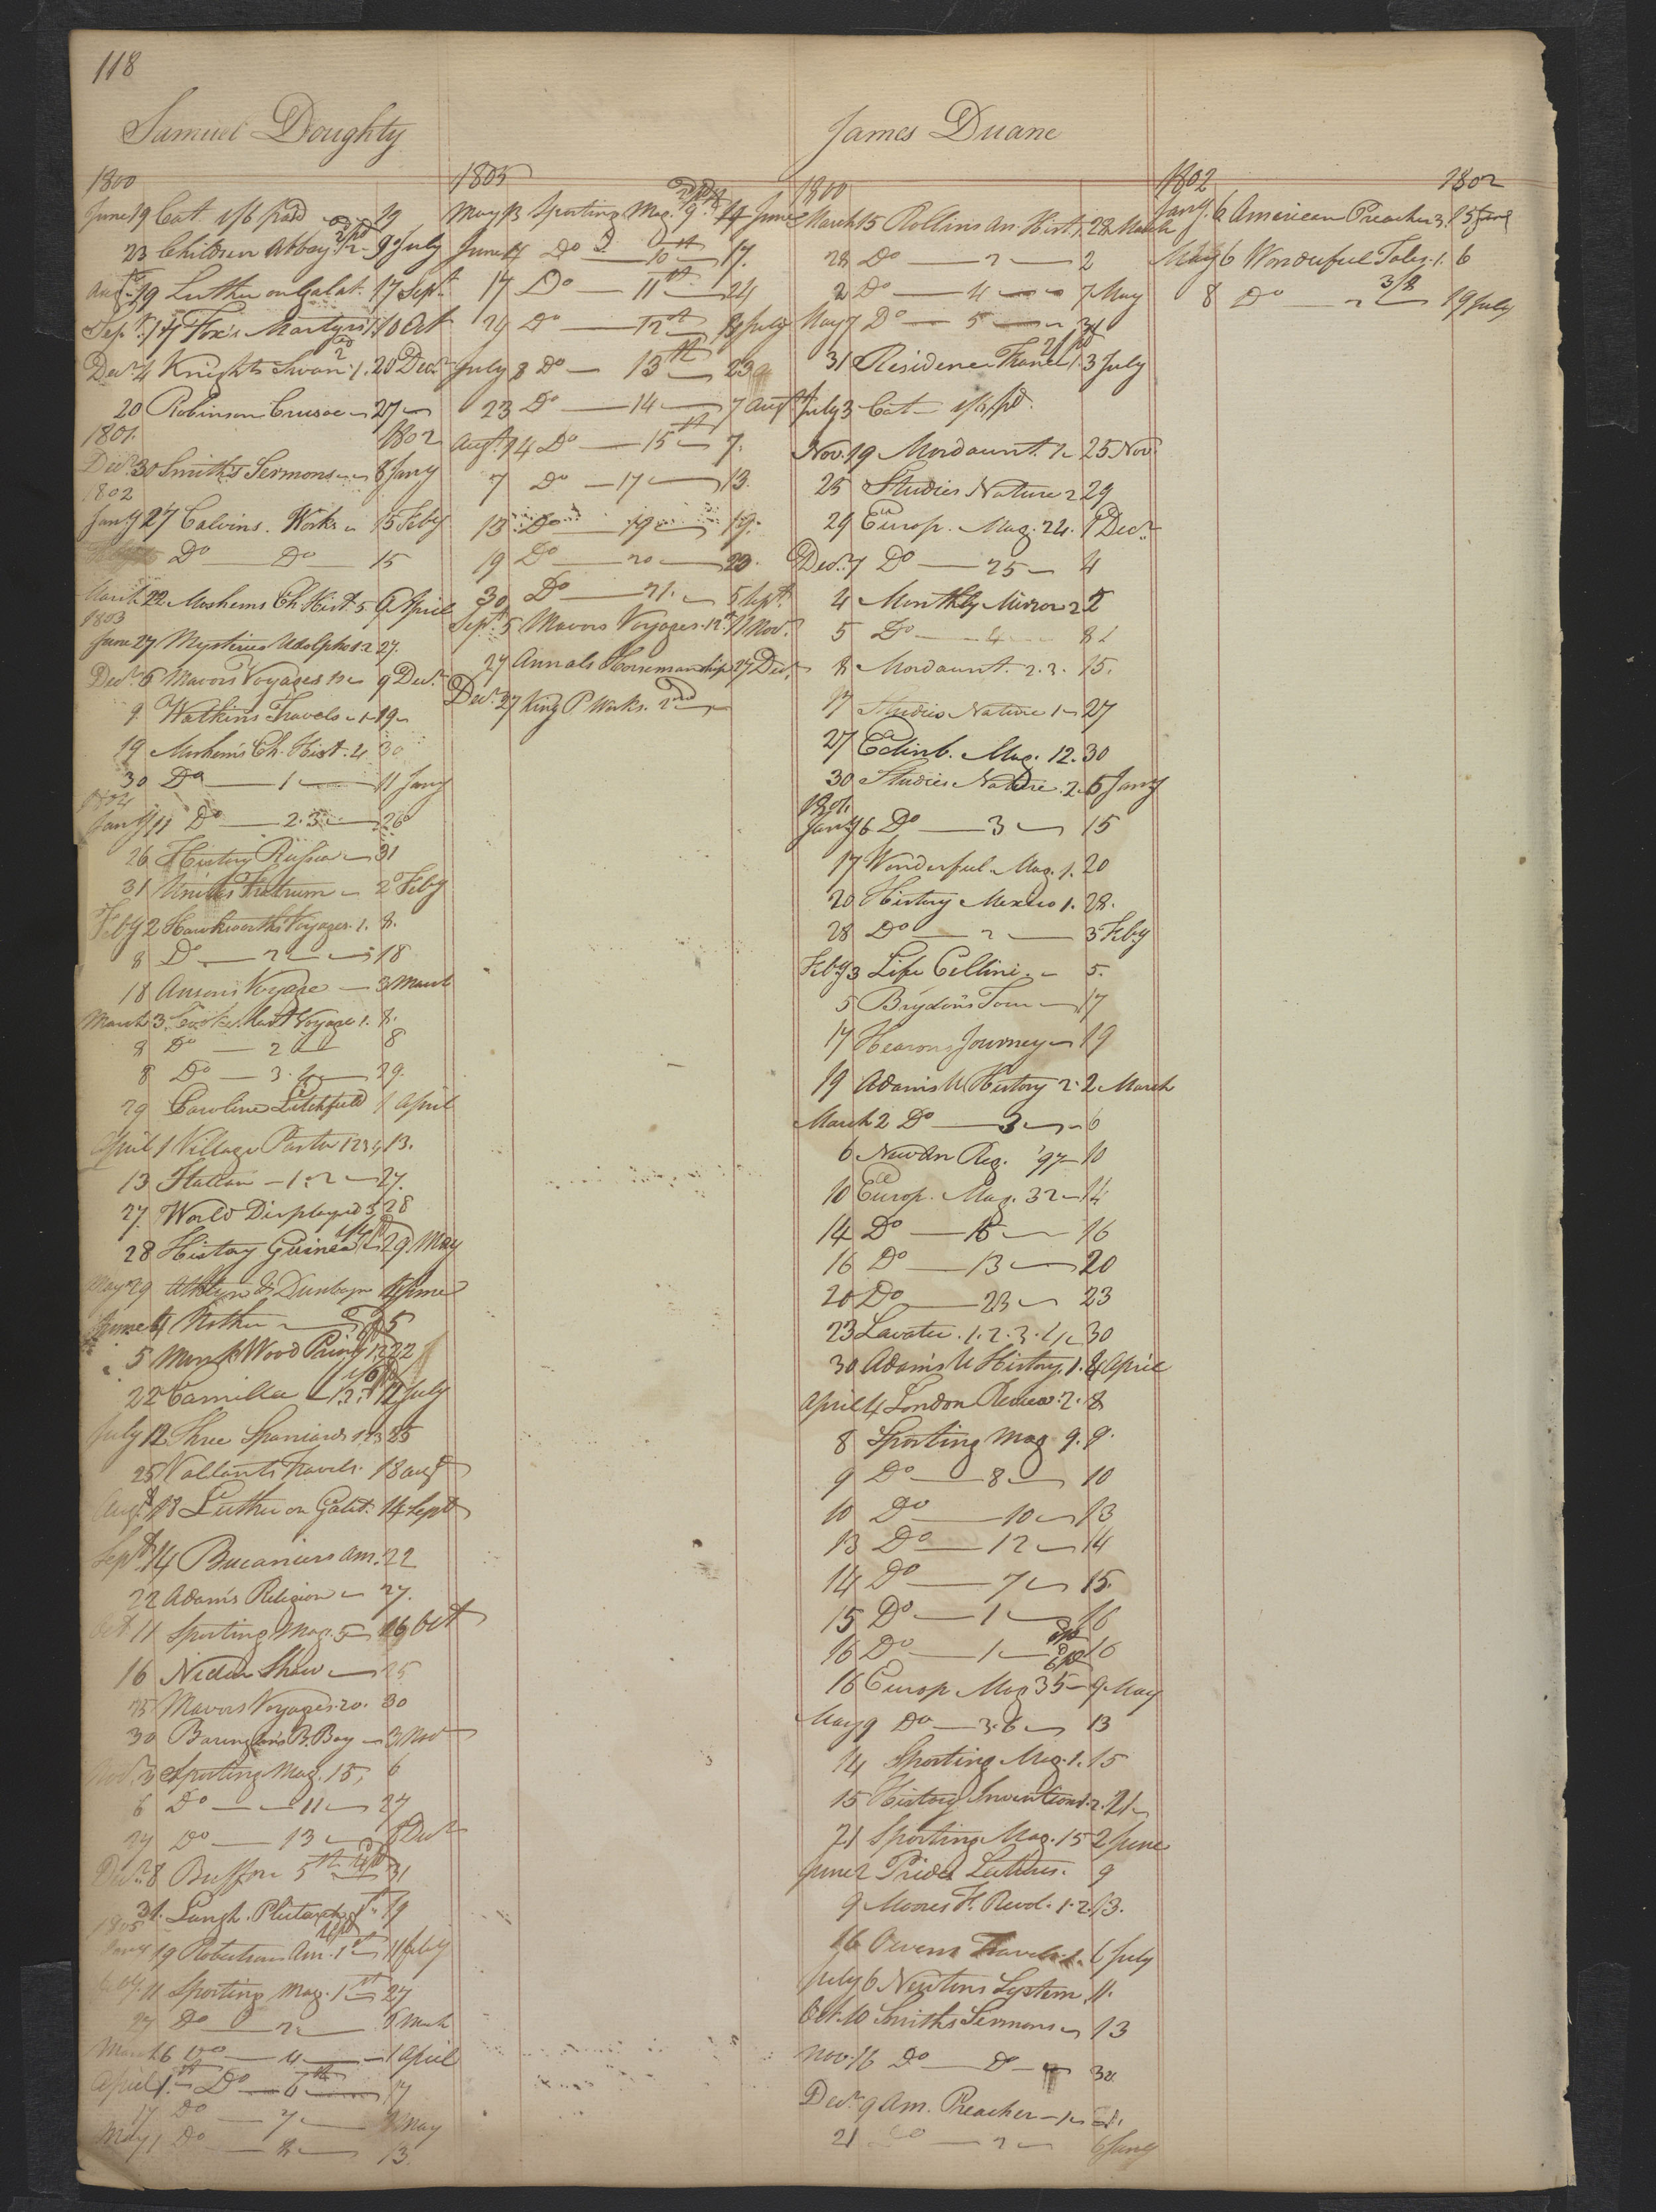 118
Samuel Doughty
1800
June 19 Cat. 1/6 paid 19
23 Children Abbey 1.2 9 July
Augt 19 Luther on Galat. 17 Sept
Sepr 17 Fox's Martyrs 10 Oct
Decr 4 Knights Swan 1. 20 Decr
20 Robinson Crusoe 27
1801. 1802
Decr 30 Smith's Sermons 8 Jany
1802
Jany 27 Calvins. Works 15 Feby
Do Do 15
March 22 Moshems Ch Hist. 5 6 April
1803
June 27 Mysteries Udolpho 1 2 27.
Decr 6 Mavors Voyages 9 Decr
9 Watkins Travels 1 19
19 Moshem's Ch. Hist. 4 30
30 Do 1 11 Jany
1804
Jany 11 Do 2.3 26
26 History Russia 31
31 Unitas Fratrum 2 Feby
Feby 2 Hawkworths Voyages. 1. 8.
8 Do 2 18
18 Ansons Voyage 3 March
March 3 Cooks last Voyage 1. 8.
8 Do 2 8
8 Do 3.4 29.
29 Caroline Litchfield 1 April
April 1 Village Pastor 1 2 3 13.
13 Italian 1.2 27.
27. World Displayed 3 28
28 History Guinea 29 May
May 29 Athlyn & Dunbayne 4 June
June 4 Nothin 5
5 Monk Wood Priory 1.2 22
22 Camilla 1.2. 12 July
July 12 Three Spaniards 1.2.3 25
25 Vallants Travels. 18 augt
Augt 18 Luther on Galat. 14 Sept
Sept 14 Bucaniers Am. 22
22 Adams Religion 27.
Oct 11 Sporting Mag. 5 16 Oct
16 Nadir Shaw 25
25 Mavors Voyages. 20. 30
30 Barringtons B. Bay 3 Nov
Nov. 3 Sporting Mag. 15, 6
6 Do 11 27
27 Do 13 8 Decr
Decr 8 Buffon 5th 31
31. Langh. Plutarch 1st 19
1805
Jany 19 Robertsons Am. 1st 11 feby
Feby. 11 Sporting Mag. 1st 27
27 Do 2 6 March
March 6 Do 4 1 April
April 1st Do 6th 17
17 Do 7 1 May
May 1 Do 8 13.
1805
May 13 Sporting Mag. 9th 14 June
June 14 Do 10th 17.
17 Do 11th 24
24 Do 12th 8 July
July 8 Do 13th 23
23 Do 14 7 Augt
Augt 4 Do 15th 7.
7 Do 17 13.
13 Do 19 19.
19 Do 20 23.
30 Do 21. 5 Sept.
Sept. 5 Mavors Voyages. 12th 11 Nov.
27 Annals Horsemanship 27 Decr
Decr 27 King P. Works. 2nd
James Duane
1800
March 15 Rollins An. Hist 1 28 March
28 Do 2 2
2 Do 4 7 May
May 7 Do 5 31
31 Residence France 1. 3 July
July 3 Cat 1/6 pd.
Nov. 19 Mordaunt. 1 25 Nov.
25 Studies Nature 2 29
29 Europ. Mag. 24. 1 Decr
Decr. 1 Do 25 4
4 Monthly Mirror 2 5
5 Do 4 8
8 Mordaunt. 2.3. 15.
17 Studies Nature 1 27
27 Edinb. Mag. 12. 30
30 Studies Nature. 2. 6 Jany
1801.
Jany 6 Do 3 15
17 Wonderful Mag. 1. 20
20 History Mexico 1. 28.
28 Do 2 3 Feby
Feby 3 Life Cellini. 5.
5 Brydon's Tour 17
17 Hearons Journey 19
19 Adams U History 2. 2 March
March 2 Do 3 6
6 New An Reg. '97 10
10 Europ. Mag. 32 14
14 Do 15 16
16 Do 13 20
20 Do 23 23
23 Lavater. 1.2.3.4 30
30 Adams U History. 1. 4 April
April 4 London Review. 2. 8
8 Sporting Mag 9. 9.
9 Do 8 10
10 Do 10 13
13 Do 12 14
14 Do 7 15.
15 Do 1 16
16 Do 1 16
16 Europ Mag 35 9 May
May 9 Do 36 13
14 Sporting Mag. 1. 15
15 History Inventions. 2. 21
21 Sporting Mag. 15 2 June
June 2 Prides Letters. 9
9 Moores F. Revol. 1.2. 13.
16 Owens Travels. 1. 6 July
July 6 Newtons System. 11.
Oct. 10 Smiths Sermons 13
Nov. 16 Do Do 30
Decr 9 Am. Preacher 1 21.
21 Do 2 6 Jany
1802 1802
Jany. 6 American Preacher 3. 15 June
May 6 Wonderful Tales. 1. 6
8 Do 2 19 July